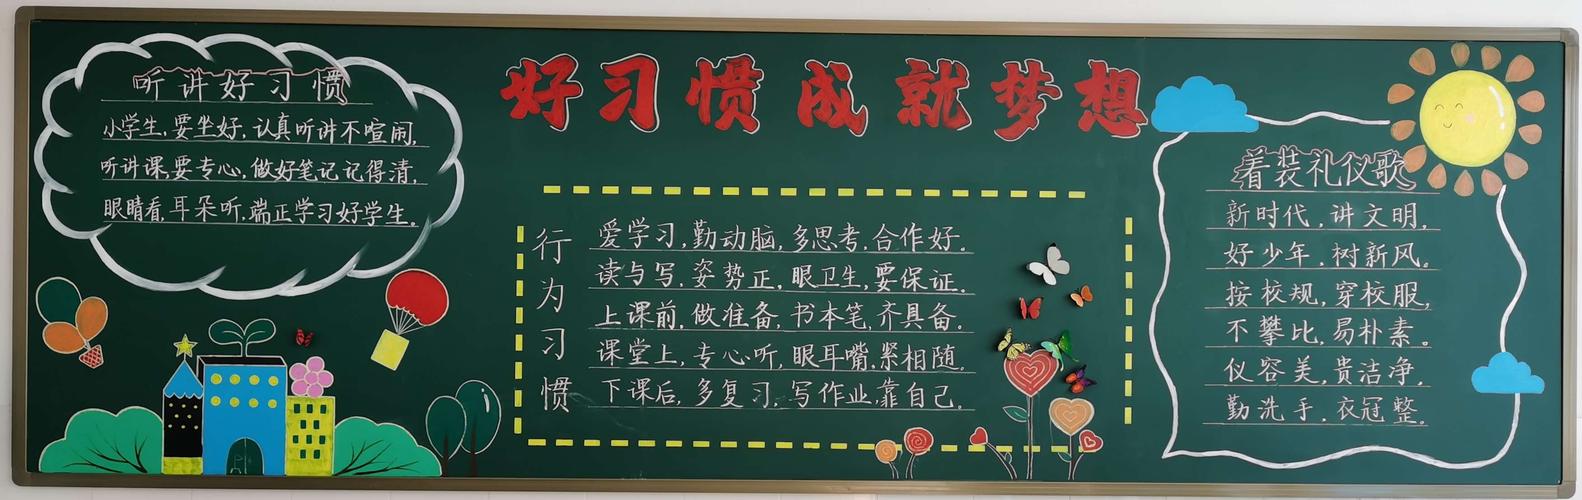 好习惯成就梦想
听讲好习惯
小学生,要坐好,认真听讲不喧闹,
听讲课,要专心,做好笔记记得清,
眼睛看,耳朵听,端正学习好学生。
行为习惯
爱学习,勤动脑,多思考,合作好。
读与写,姿势正,眼卫生,要保证。
上课前,做准备,书本笔,齐具备。
课堂上,专心听,眼耳嘴,紧相随。
下课后,多复习,写作业,靠自己。
着装礼仪歌
新时代,讲文明,
好少年,树新风。
按校规,穿校服,
不攀比,易朴素。
仪容美,贵洁净,
勤洗手,衣冠整。